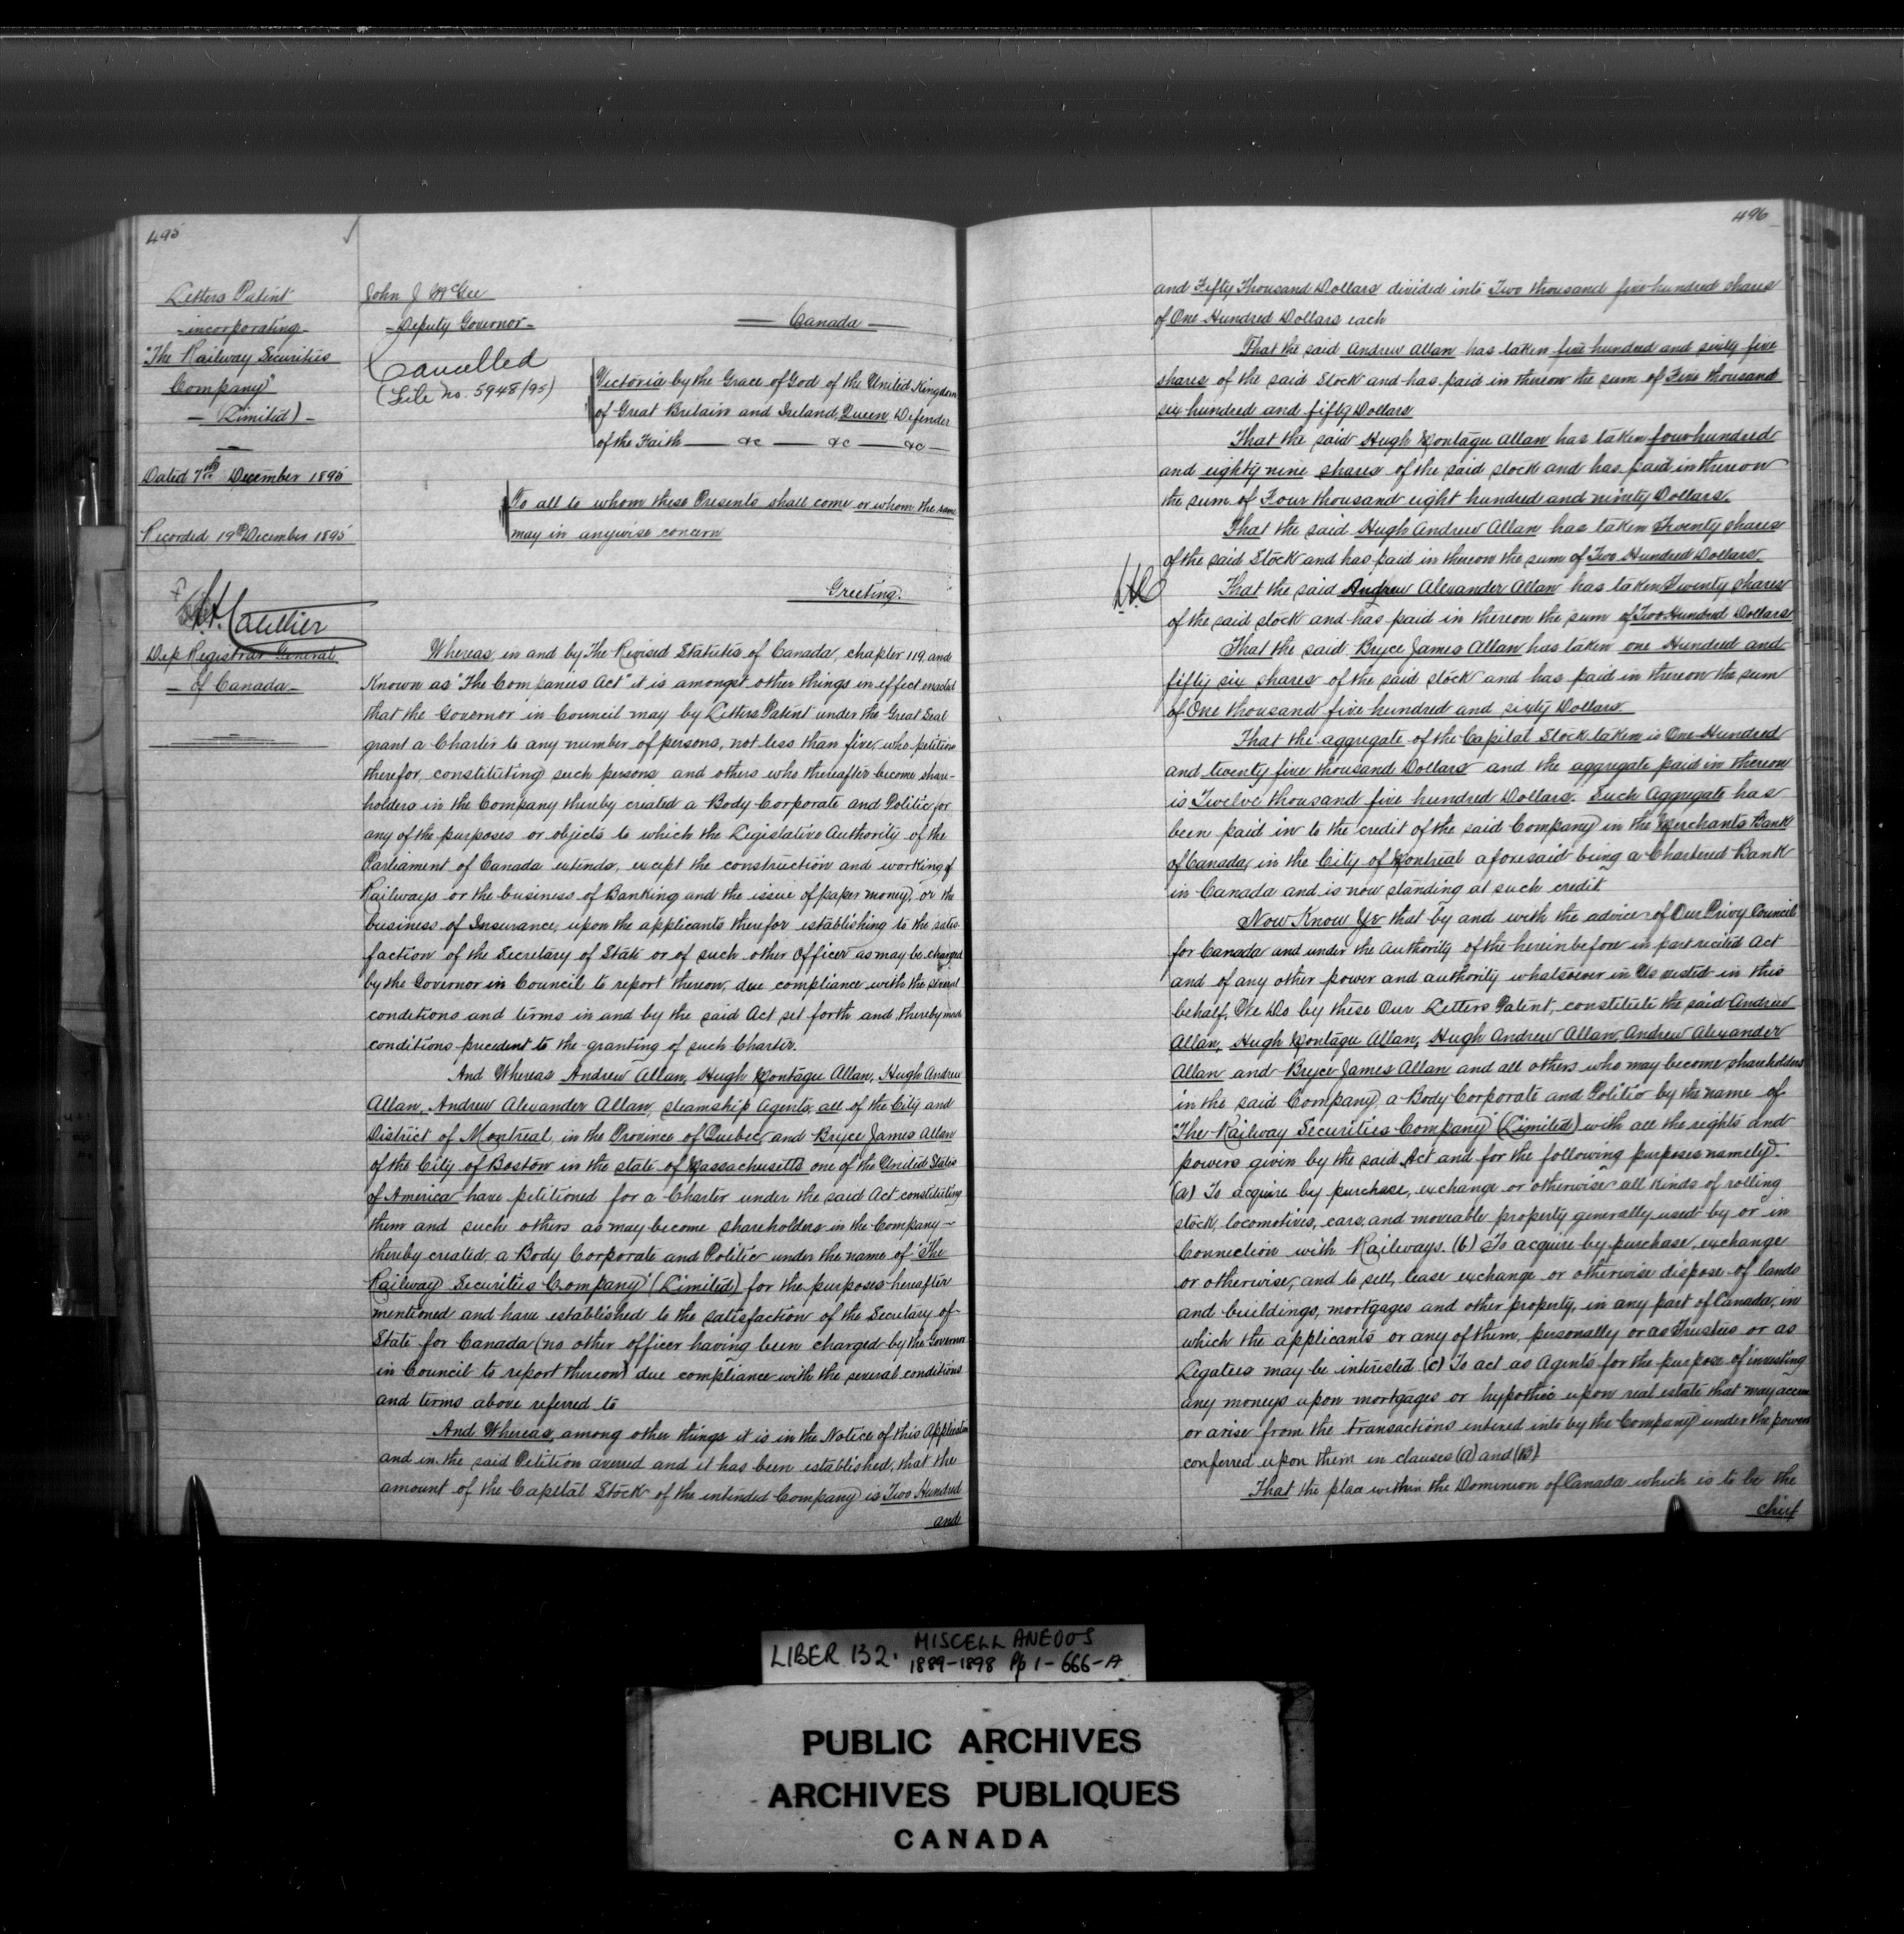 495
Letters Patent
-incorporating-
"The Railway Securities
Company"
- (Limited) -
Dated 7th December 1895
Recorded 19th December 1895
Dep Registrar General
- of Canada -
John J McGee
- Deputy Governor -
Cancelled
(File No. 5948/95)
— Canada —
Victoria by the Grace of God of the United Kingdom
of Great Britain and Ireland, Queen Defender
of the Faith — &c — &c — &c —
To all to whom these Presents shall come or whom the same
may in anywise concern
Greeting.
Whereas, in and by The Revised Statutes of Canada, chapter 119, and
Known as "The Companies Act" it is amongst other things in effect enacted
that the Governor in Council may by Letters Patent under the Great Seal
grant a Charter to any number of persons, not less than five, who petition
therefor, constituting such persons and others who thereafter become share-
holders in the Company thereby created a Body Corporate and Politic for
any of the purposes or objects to which the Legislative Authority of the
Parliament of Canada extends, except the construction and working of
Railways or the business of Banking and the issue of paper money, or the
business of Insurance, upon the applicants therefor establishing to the satis-
faction of the Secretary of State or of such other Officer as may be charged
by the Governor in Council to report thereon, due compliance with the several
conditions and terms in and by the said Act set forth and thereby made
conditions precedent to the granting of such Charter.
And Whereas Andrew Allan, Hugh Montagu Allan, Hugh Andrew
Allan, Andrew Alexander Allan, steamship Agents, all of the City and
District of Montreal, in the Province of Quebec, and Bryce James Allan
of the City of Boston in the state of Massachusetts one of the United States
of America have petitioned for a Charter under the said Act constituting
them and such others as may become shareholders in the Company -
thereby created, a Body Corporate and Politic under the name of "The
Railway Securities Company" (Limited) for the purposes hereafter
mentioned and have established to the satisfaction of the Secretary of
State for Canada (no other officer having been charged by the Governor
in Council to report thereon) due compliance with the several conditions
and terms above referred to
And Whereas, among other things it is in the Notice of this Application
and in the said Petition averred and it has been established, that the
amount of the Capital Stock of the intended Company is Two Hundred
and
496
and Fifty Thousand Dollars divided into Two thousand five hundred shares
of One Hundred Dollars each
That the said Andrew Allan has taken five hundred and sixty five
shares of the said Stock and has paid in thereon the sum of Five thousand
six hundred and fifty Dollars
That the said Hugh Montagu Allan has taken four hundred
and eighty nine shares of the said stock and has paid in thereon
the sum of Four thousand eight hundred and ninety Dollars.
That the said Hugh Andrew Allan has taken Twenty shares
of the said Stock and has paid in thereon the sum of Two Hundred Dollars.
That the said Andrew Alexander Allan has taken Twenty shares
of the said stock and has paid in thereon the sum of Two Hundred Dollars
That the said Bryce James Allan has taken one Hundred and
fifty six shares of the said stock and has paid in thereon the sum
of One thousand five hundred and sixty Dollars
That the aggregate of the Capital Stock taken is One Hundred
and twenty five thousand Dollars and the aggregate paid in thereon
is Twelve thousand five hundred Dollars. Such Aggregate has
been paid in to the credit of the said Company in the Merchants Bank
of Canada, in the City of Montreal aforesaid being a Chartered Bank
in Canada and is now standing at such credit
Now Know Ye that by and with the advice of Our Privy Council
for Canada and under the authority of the hereinbefore in part recited Act
and of any other power and authority whatsoever in Us vested in this
behalf, We Do by these Our Letters Patent, constitute the said Andrew
Allan, Hugh Montagu Allan, Hugh Andrew Allan, Andrew Alexander
Allan and Bryce James Allan and all others who may become shareholders
in the said Company, a Body Corporate and Politic by the name of
"The Railway Securities Company" (Limited) with all the rights and
powers given by the said Act and for the following purposes namely:-
(a) To acquire by purchase, exchange or otherwise all kinds of rolling
stock, locomotives, cars, and moveable property generally used by or in
Connection with Railways. (b) To acquire by purchase, exchange
or otherwise, and to sell, lease exchange or otherwise dispose of lands
and buildings, mortgages and other property, in any part of Canada, in
which the applicants or any of them, personally or as Trustees or as
Legatees may be interested (c) To act as Agents for the purpose of investing
any moneys upon mortgages or hypothec upon real estate that may accrue
or arise from the transactions entered into by the Company under the powers
conferred upon them in clauses (a) and (B)
That the place within the Dominion of Canada which is to be the
chief
LIBER 132. MISCELLANEOOS
1889-1898 Pp 1-666-A
PUBLIC ARCHIVES
ARCHIVES PUBLIQUES
CANADA